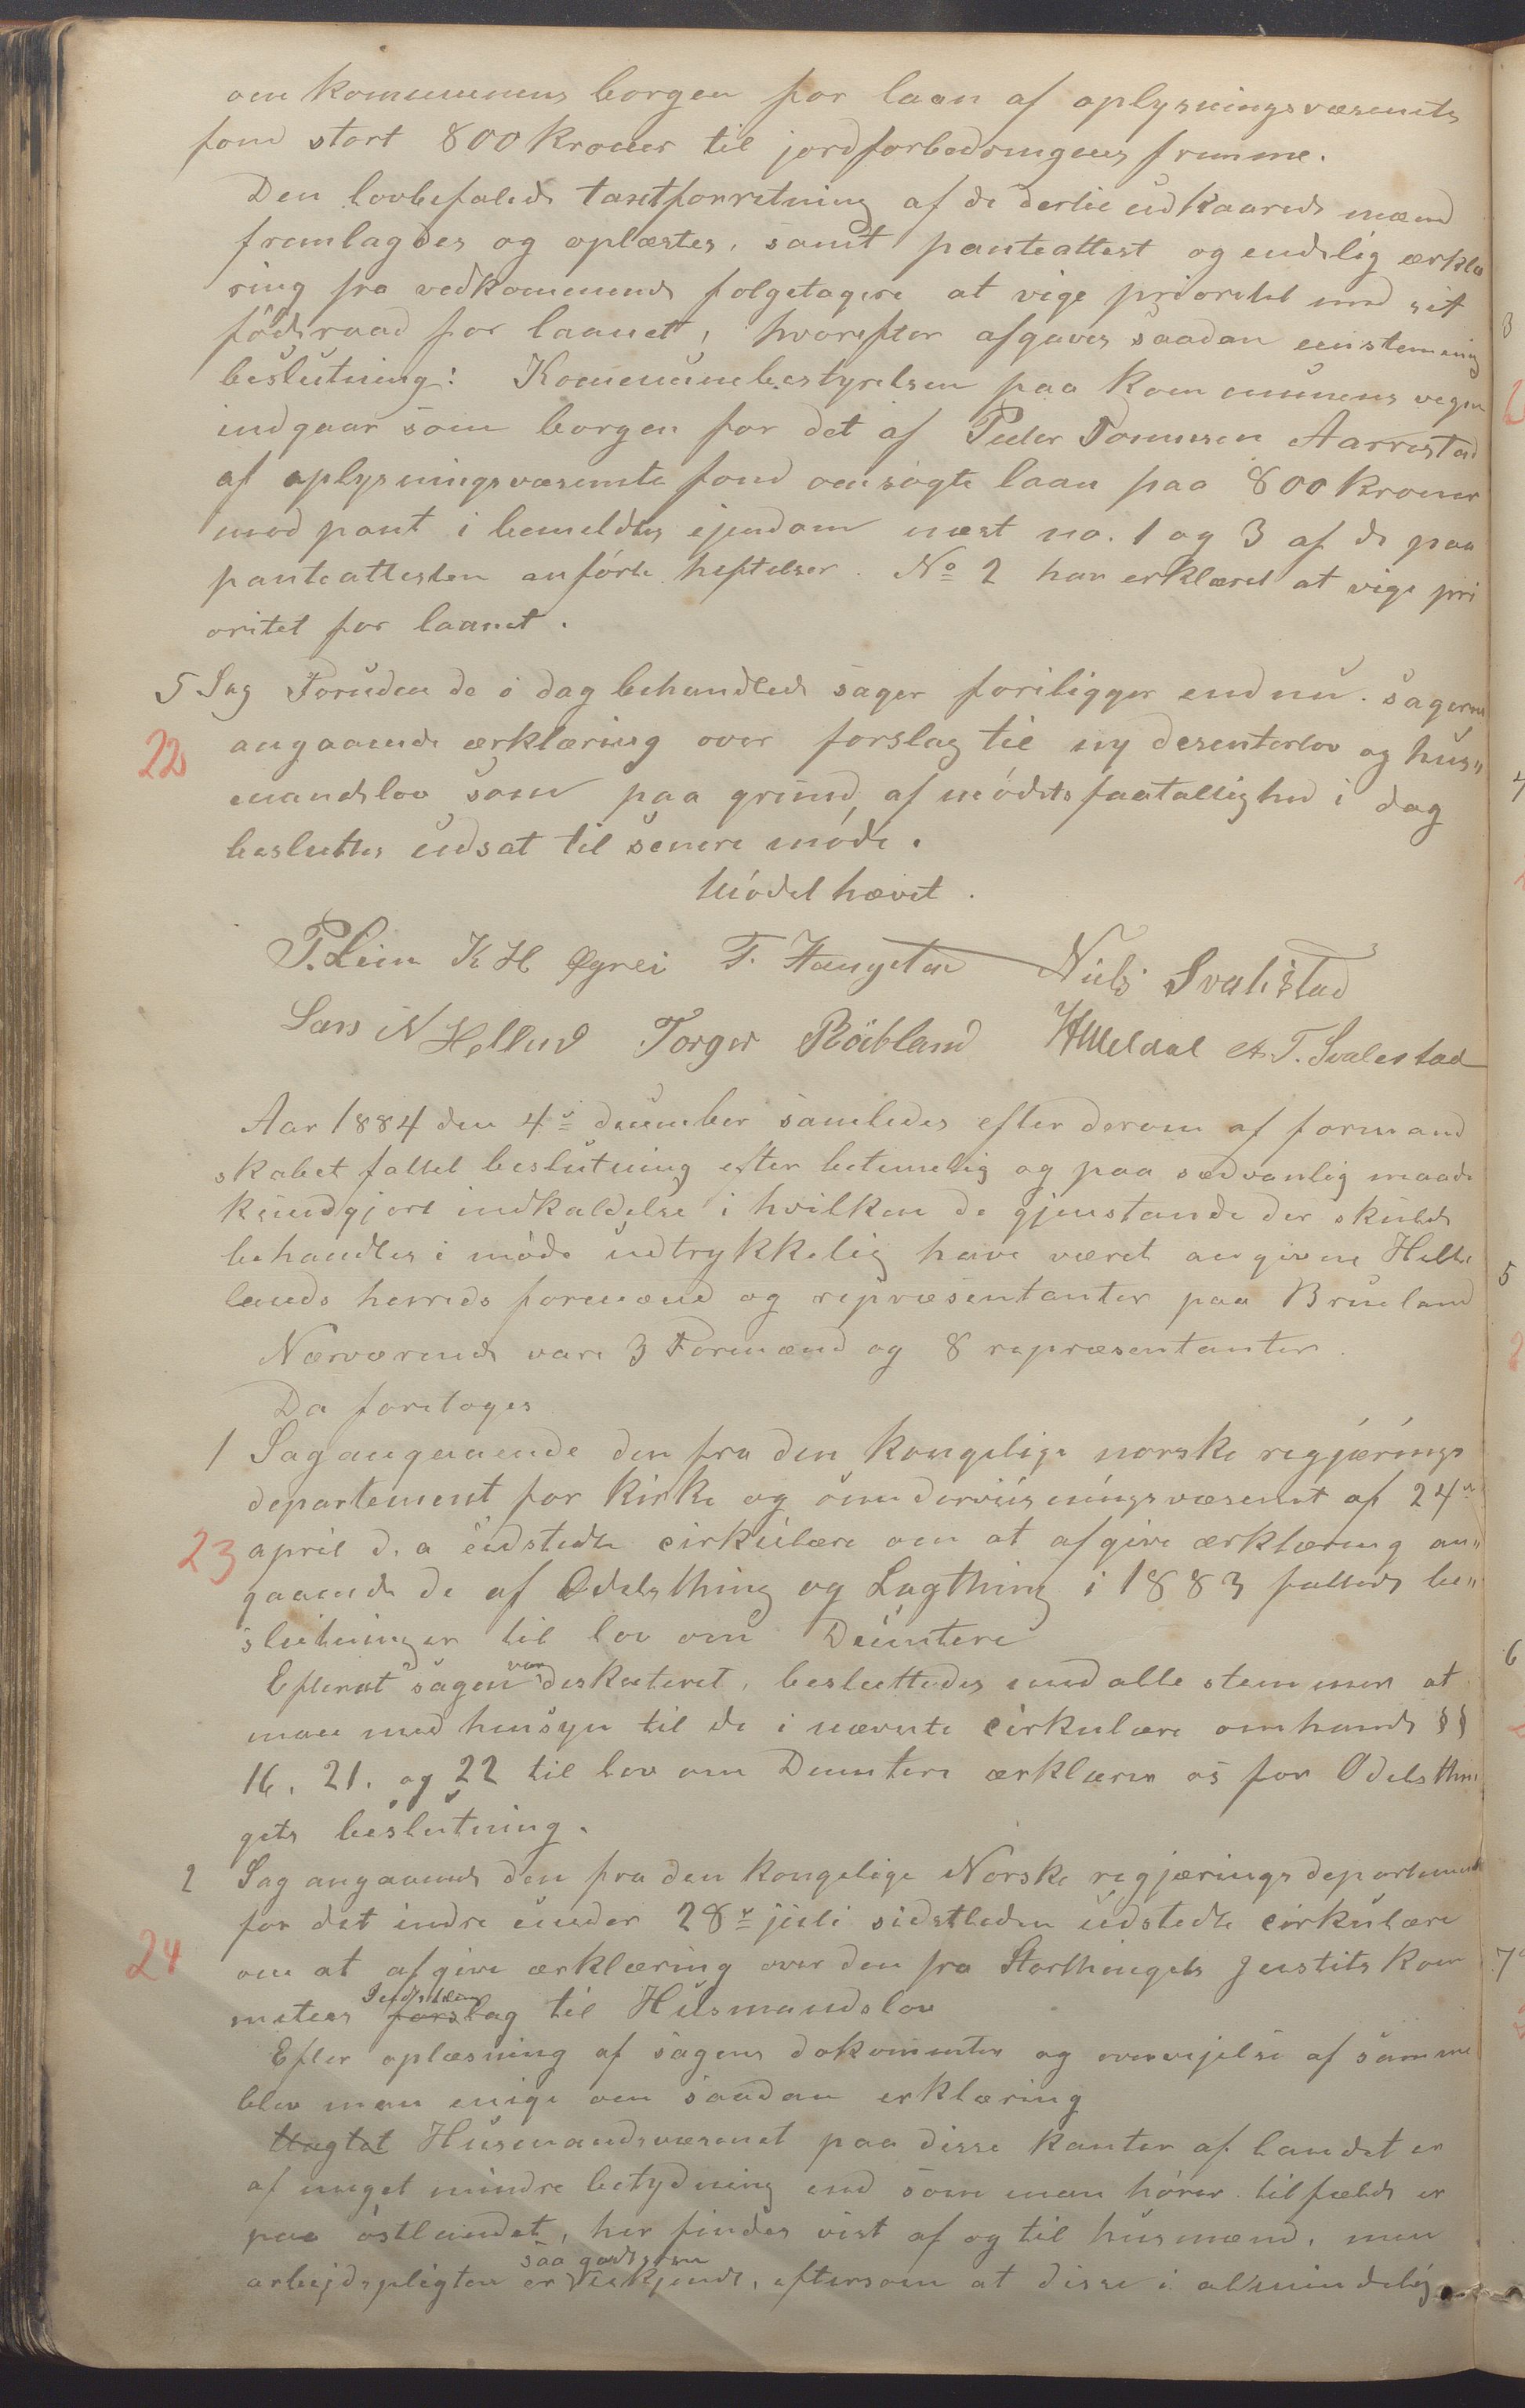 om kommunens borgen for laan af oplysningsvæsenets
fond stort 800 kroner til jordforbedringens fremme.
Den lovbefalede taxtforretning af de dertil udkaarede mænd
fremlagdes og oplæstes, samt panteattest og endelig erklæ
ring fra vedkommende folgetagere at vige prioritet med sit
föderaad for laanet, hvorefter afgaves saadan enstemmig
beslutning: Kommunebestyrelsen paa kommunens vegne
indgaar som borgen for det af Peder Tonnesen Aarrestad
af oplysningsvæsenets fond ansøgte laan paa 800 kroner
mod pant i bemeldtes ejendom næst no. 1 og 3 af de paa
panteattesten anförte heftelser. No 2 har erklæret at vige pri
oritet for laanet.
5 Sag Foruden de i dag behandlede sager foreligger endnu sagerne
22 angaaende erklæring over forslag til ny desenterlov og hus„
mandslov som paa grund af mödets faatallighed i dag
besluttes udsat til senere möde.
Mödet hævet.
P. Liin K H Øgrei T. Haugstad Niels Svalestad
Lars N Helland Torger Röibland H Meldal A. T. Svalestad
Aar 1884 den 4de december samledes efter derom af formand
skabet fattet beslutning efter betimelig og paa sedvanlig maade
kundgjort indkaldelse i hvilken de gjenstande der skulde
behandles i möde udtrykkelig have været angivne Helle
lands herreds formænd og repræsentanter paa Brueland
Nærværende vare 3 Formænd og 8 repræsentanter.
Da foretoges
1 Sag angaaende den fra den kongelige norske regjærings
departement for kirke og undervisningsvæsenet af 24de
23 april d. a udstedte cirkulære om at afgive erklæring an„
gaaende de af Odelsthing og Lagthing i 1883 fattede be„
slutninger til lov om Desentere
Efterat sagen var deskuteret, besluttedes med alle stemmer at
man med hensyn til de i nævnte cirkulære omhandl §§
16. 21. og 22 til lov om Desentere erklærer os for Odelsthin
gets beslutning.
2 Sag angaaende den fra den kongelige Norske regjærings departement
for det indre under 28de juli sidstleden udstedte cirkulære
24 om at afgive erklæring over den fra Storthingets Justitskom
mitees forslag til Husmandslov
Efter oplæsning af sagens dokumenter og overvejelse af samme
blev man enige om saadan erklæring
Uagtet Husmandsvæsenet paa disse kanter af landet er
af meget mindre betydning end som man hörer tilfælde er
paa östlandet, her findes vist af og til husmænd, men
saa godt som
arbejdspligten er ukjendt, eftersom at disse i almindelig